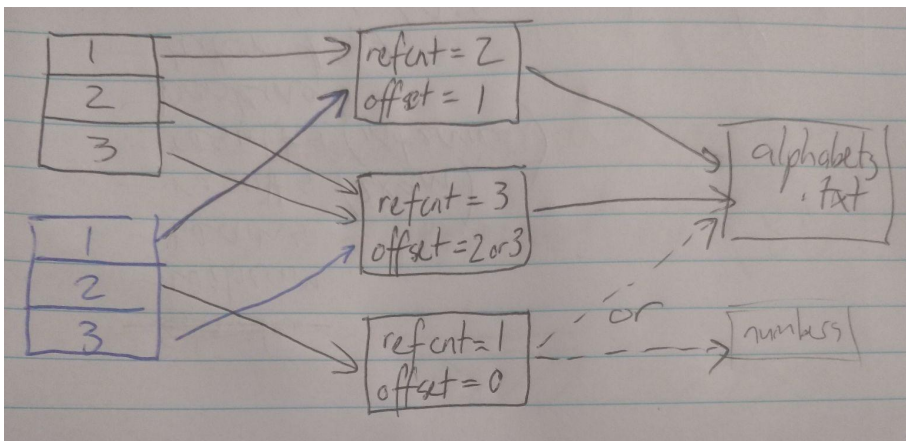 1
2
3
1
2
3
refcnt = 2
offset = 1
refcnt = 3
offset = 2 or 3
refcnt = 1
offset = 0
or
alphabets
.txt
numbers